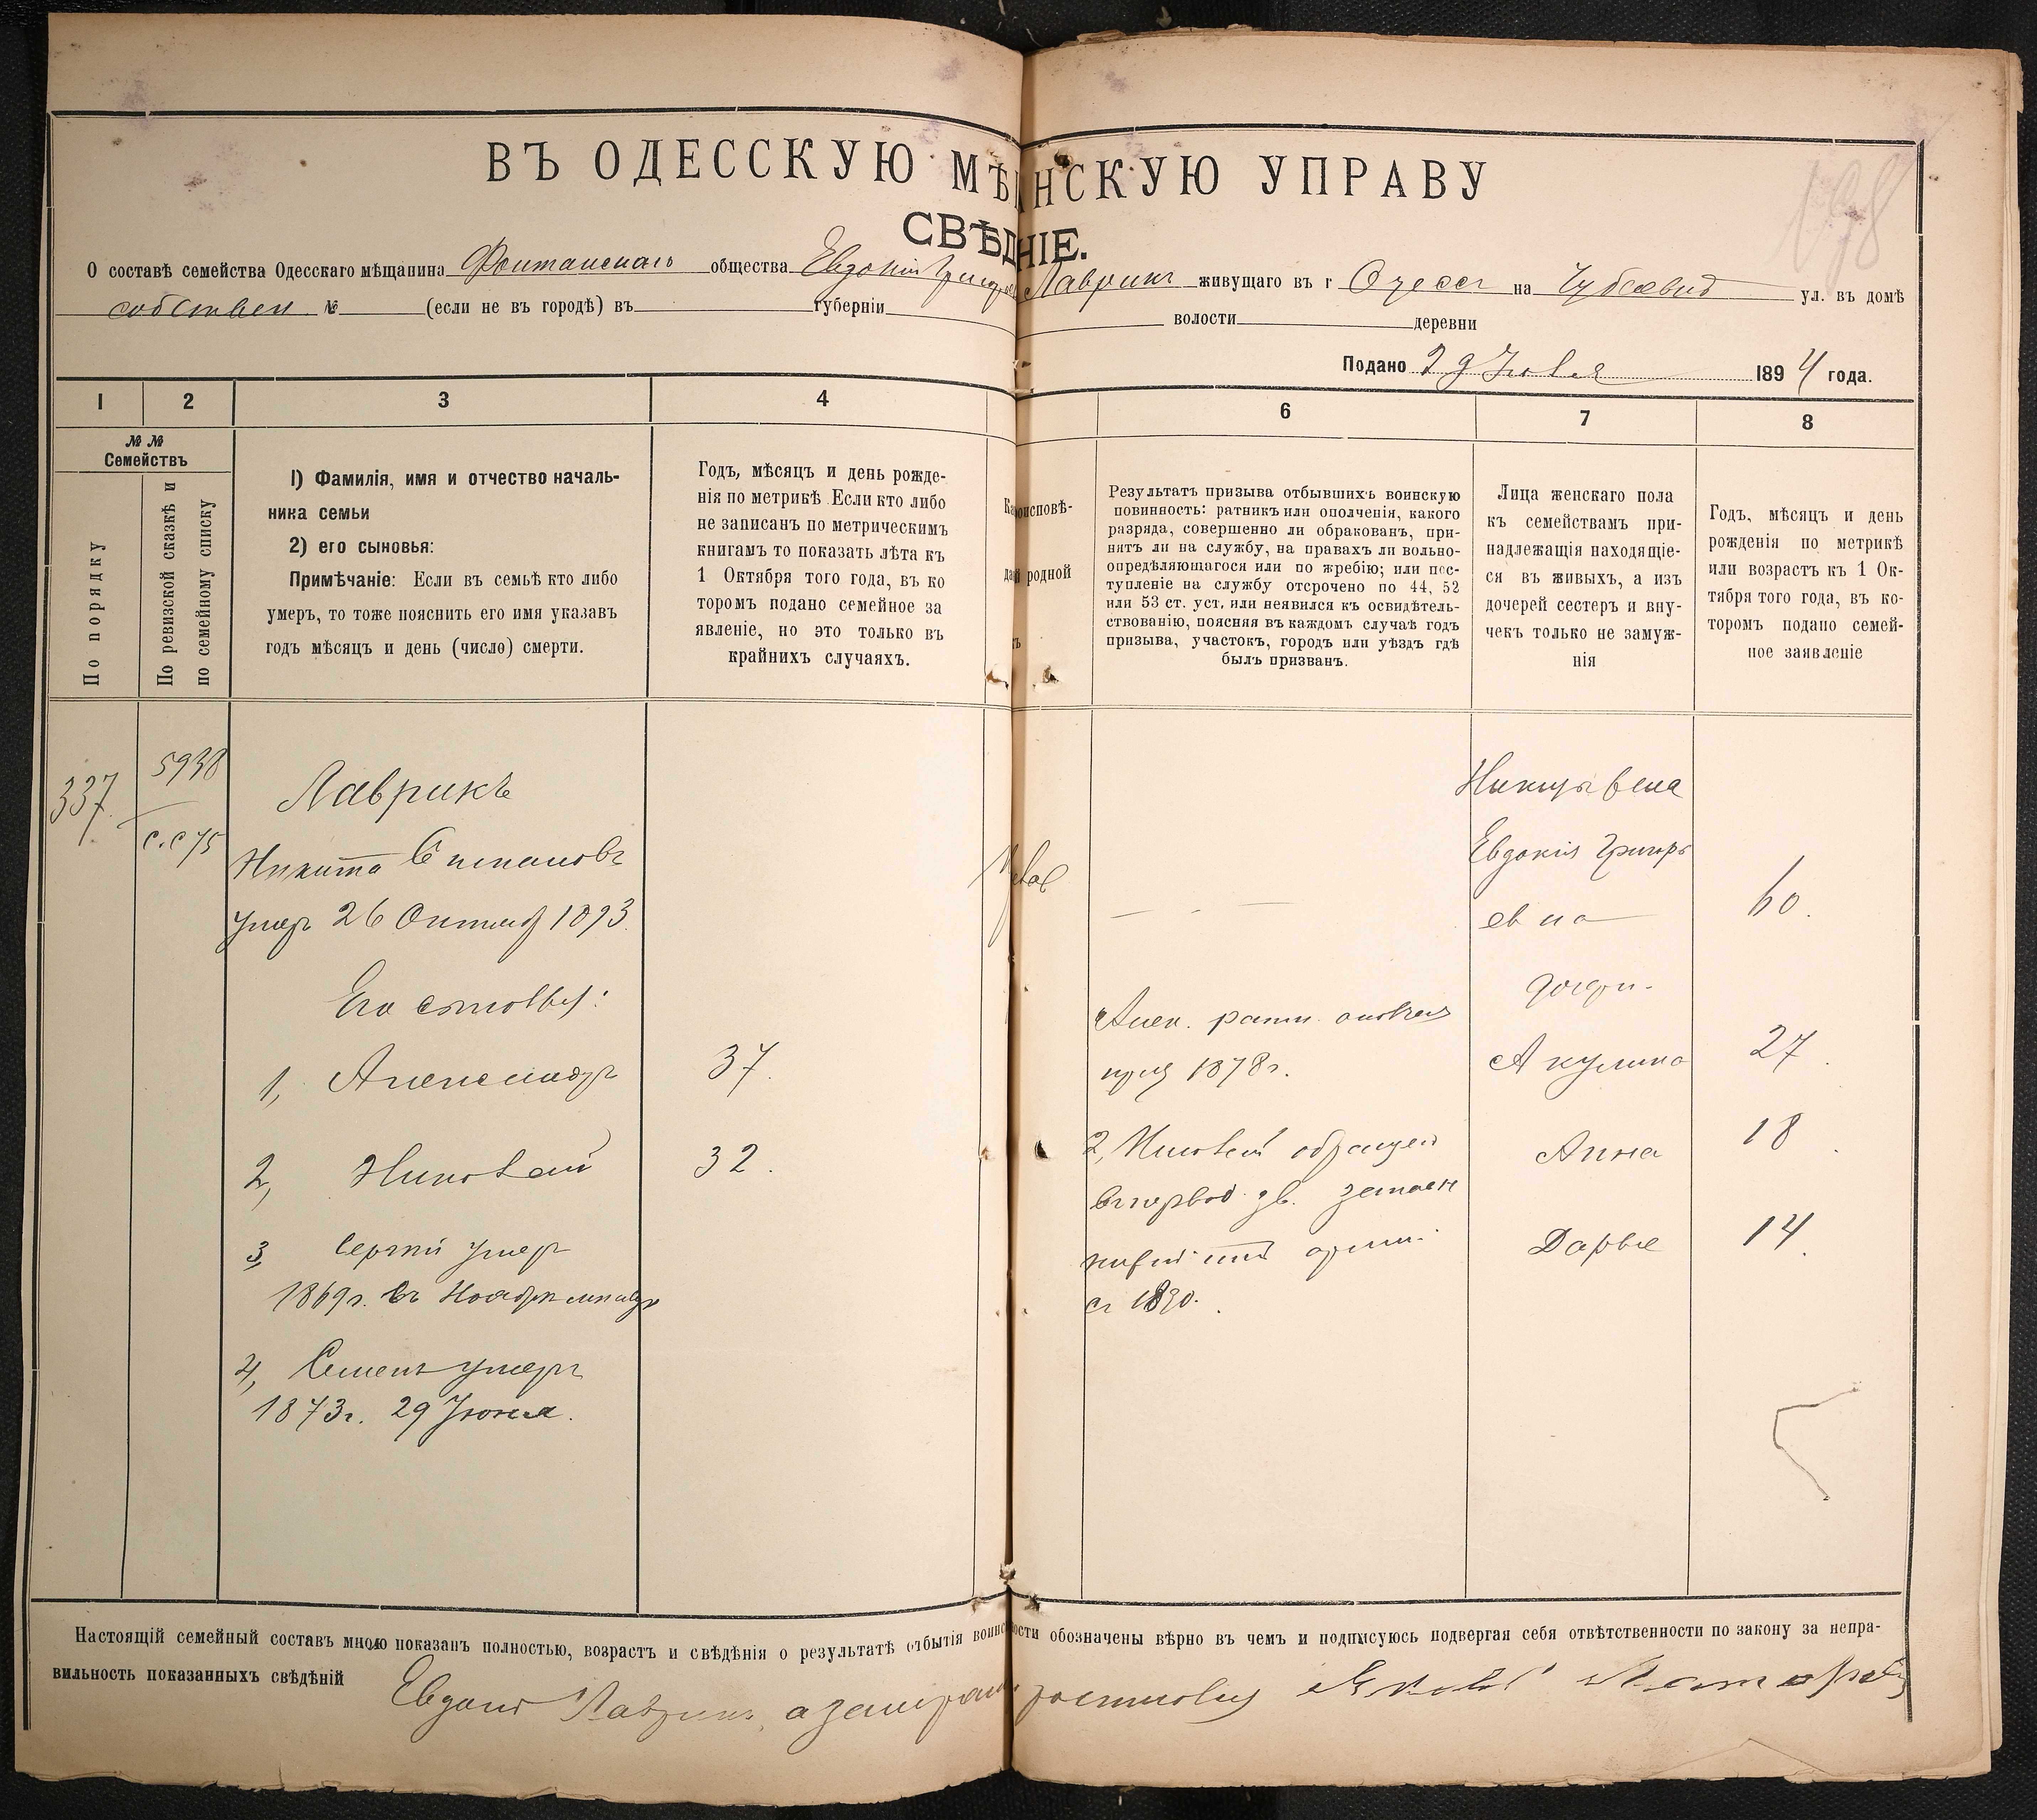 198
ВЪ ОДЕССКУЮ МѢ НСКУЮ УПРАВУ
СВѢД НІЕ.
О составѣ семейства Одесскаго мѣщанина Фонтанскаго общества Евдокіи Григор Лаврикъ живущаго въ г Одессѣ на ул. въ домѣ
собствен № (если не въ городѣ) въ губерніи волости деревни
Подано 29 189 4 года.
1 2 3 4 6 7 8
№ № Семействъ
По порядку
По ревизской сказкѣ и по семейному списку
1) Фамилія, имя и отчество началь-
ника семьи
2) его сыновья:
Примѣчаніе: Если въ семьѣ кто либо
умеръ, то тоже пояснить его имя указавъ
годъ мѣсяцъ и день (число) смерти.
Годъ, мѣсяцъ и день рожде-
нія по метрикѣ Если кто либо
не записанъ по метрическимъ
книгамъ то показать лѣта къ
1 Октября того года, въ ко
торомъ подано семейное за
явленіе, но это только въ
крайнихъ случаяхъ.
Ка оисповѣ-
да родной
Результатъ призыва отбывшихъ воинскую
повинность: ратникъ или ополченія, какого
разряда, совершенно ли обракованъ, при-
нятъ ли на службу, на правахъ ли вольно-
опредѣляющагося или по жребію; или пос-
тупленіе на службу отсрочено по 44, 52
или 53 ст. уст, или неявился къ освидѣтель-
ствованію, поясняя въ каждомъ случаѣ годъ
призыва, участокъ, городъ или уѣздъ гдѣ
былъ призванъ.
Лица женскаго пола
къ семействамъ при-
надлежащія находящіе-
ся въ живыхъ, а изъ
дочерей сестеръ и вну-
чекъ только не замуж-
нія
Годъ, мѣсяцъ и день
рожденія по метрикѣ
или возрастъ къ 1 Ок-
тября того года, въ ко-
торомъ подано семей-
ное заявленіе
337
5938
с.с 75
Лаврикъ
Никита Степановъ
умеръ 26 Октяб 1893.
Его сыновья:
1, Александръ 37.
2, Николай 32.
3, Сергѣй умеръ
1869г. въ Ноябрѣ мѣсяцѣ
4, Семенъ умеръ
1873г. 29 Іюня.
Алек. ратн. ополчен
приз 1878г.
2, Николай
1890.
Никиты жена
Евдокія Григорь
евна 60.
дочери.
Акулина 27.
Анна 18.
Дарья 14.
Настоящій семейный составъ мною показанъ полностью, возрастъ и свѣдѣнія о результатѣ отбытія воинс ости обозначены вѣрно въ чемъ и подписуюсь подвергая себя отвѣтственности по закону за непра-
вильность показанныхъ свѣдѣній
Евдокія Лаврикъ, а